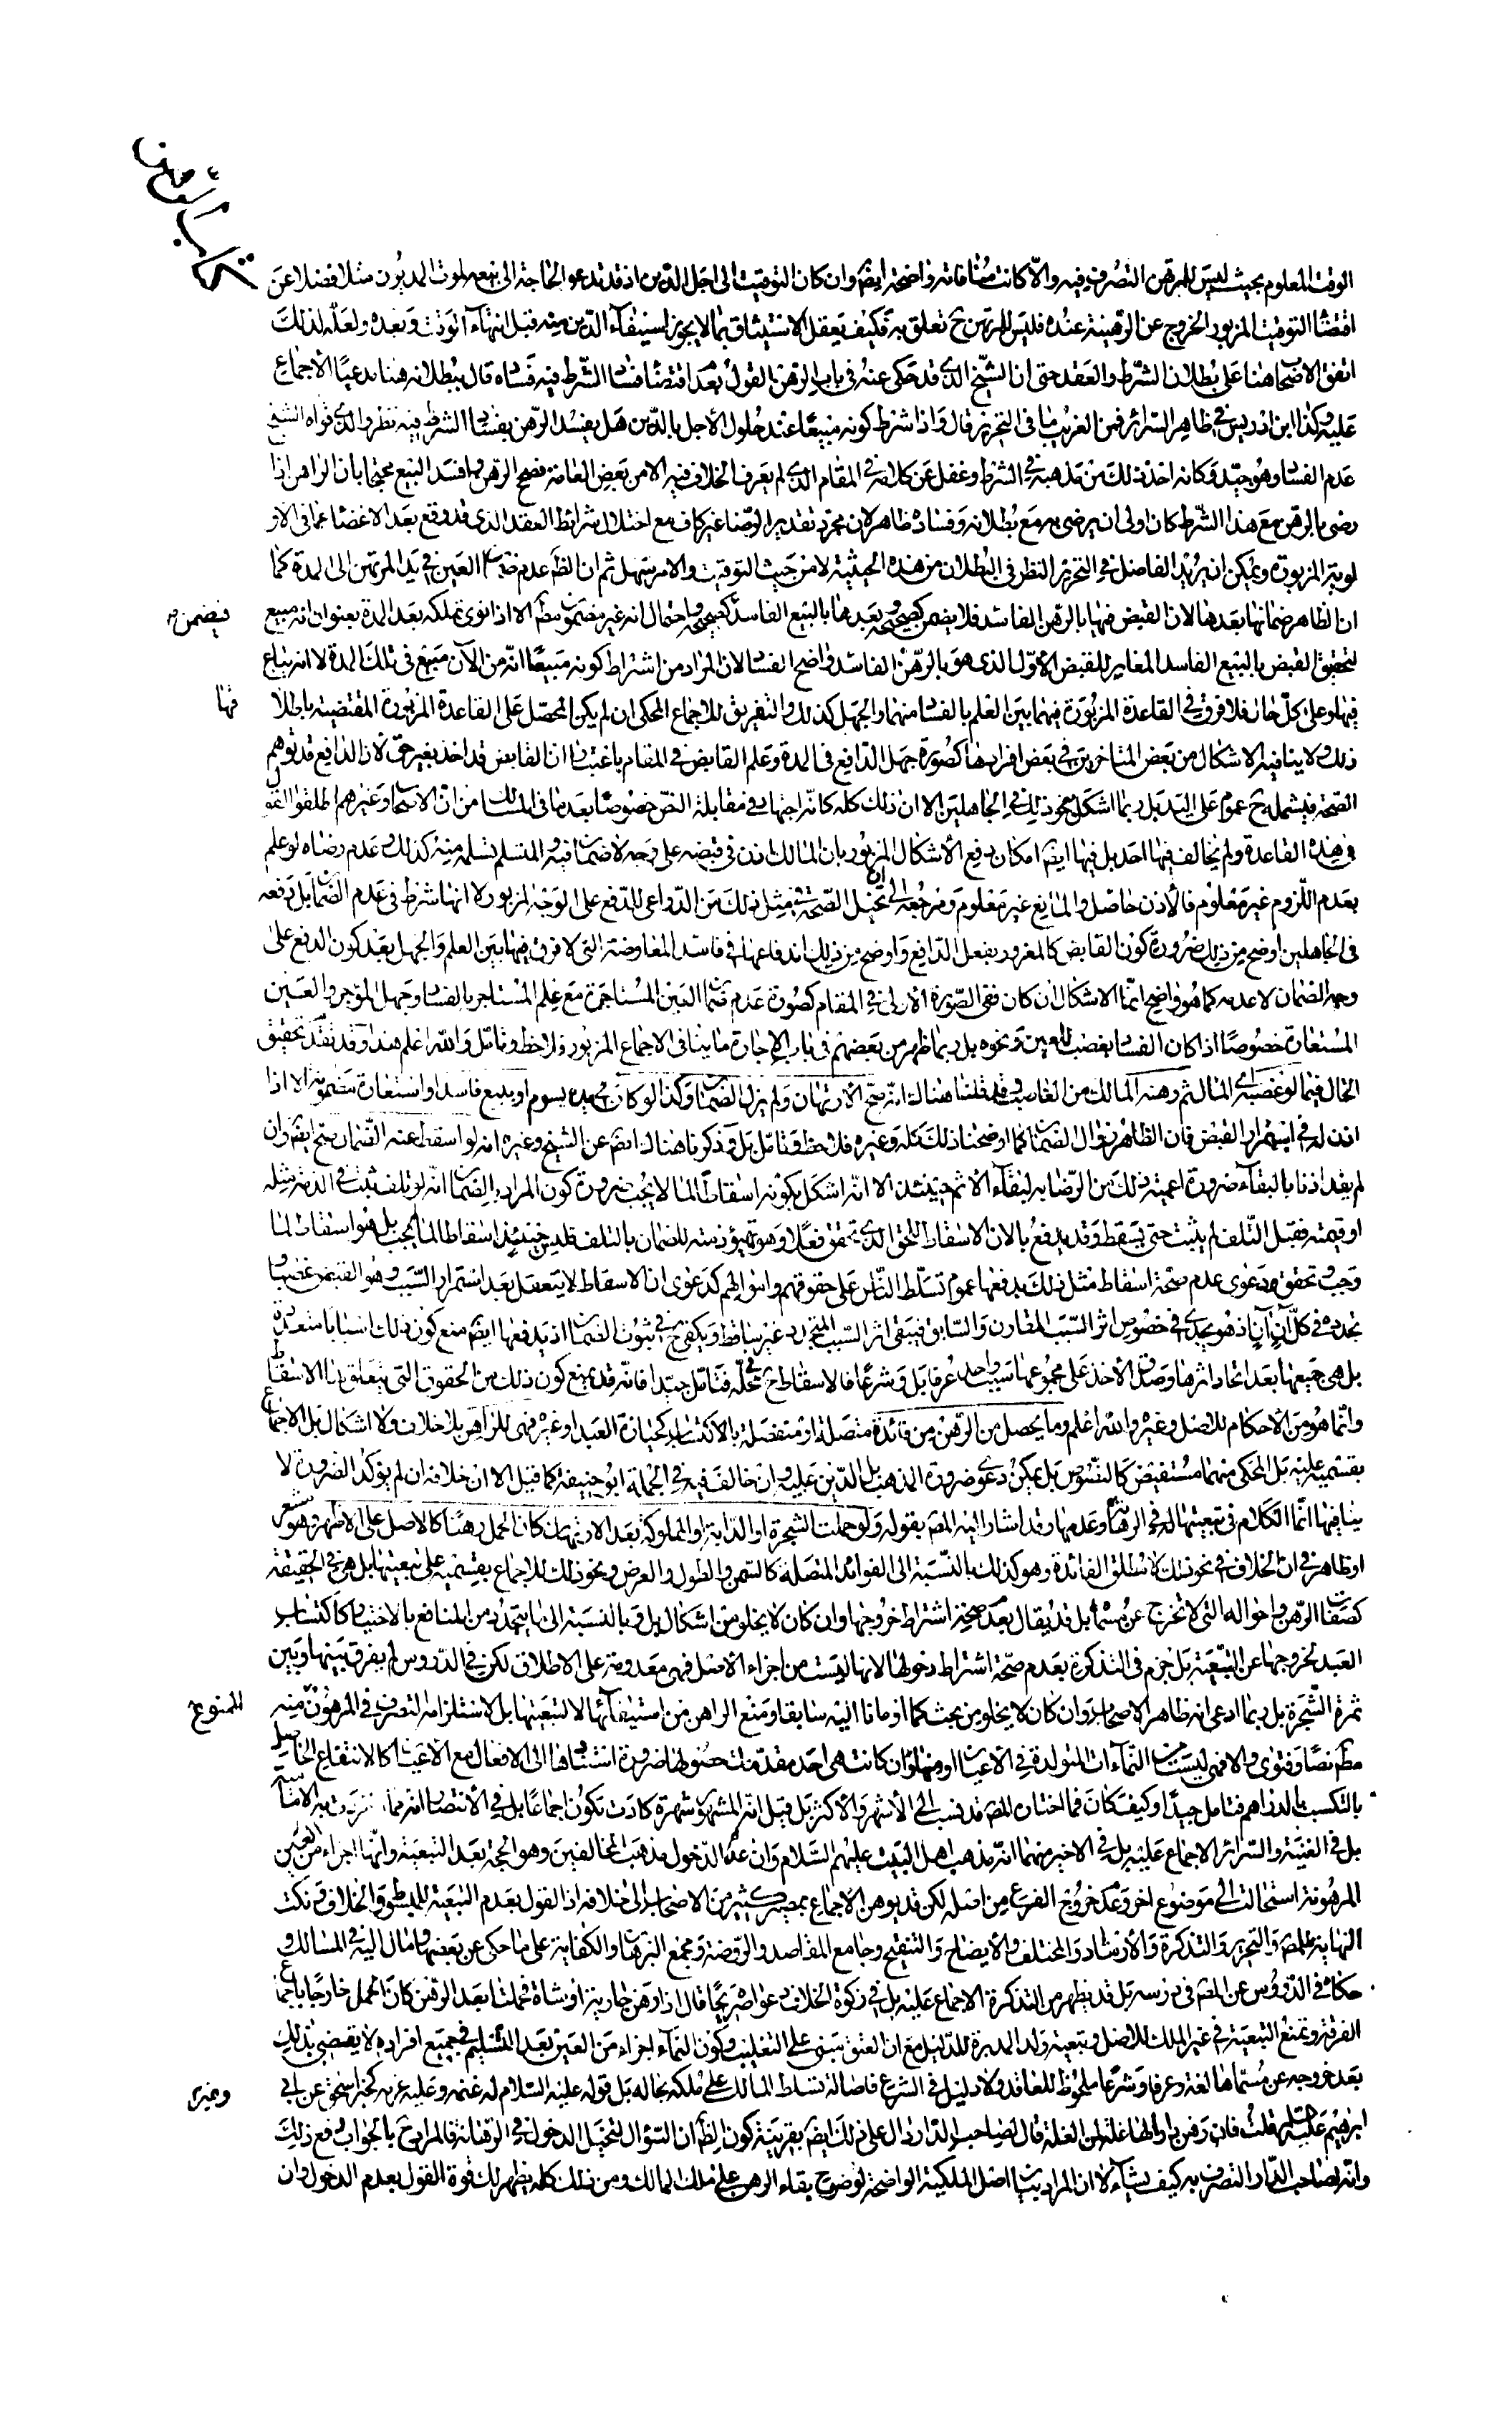 كتاب الرهن
الوقت المعلوم بحيث ليس للمرتهن التصرف فيه والا كانت منافاته واضحة ايضم وان كان التوقيت الى اجل الدين اذ قد تدعو الحاجة الى بيعه لموت المديون مثلا فضلا عن
اقتضاء التوقيت المزبور الخروج عن الرهينة عنده فليس للمرتهن ح تعلق به فكيف يعقل الاستيثاق بما لا يجوز استيفاء الدين منه قبل انتهاء الوقت وبعده ولعله لذلك
اتفق الاصحاب هنا على بطلان الشرط والعقد حتى ان الشيخ الذي قد حكى عنه في باب الرهن القول بعدم اقتضاء فساد الشرط فيه فساده قال ببطلانه هنا مدعيا الاجماع
عليه وكذا ابن ادريس في ظاهر السرائر فمن الغريب ما في التحرير قال واذا شرط كونه مبيعا عند حلول الاجل بالدين هل يفسد الرهن بفساد الشرط فيه نظر والذي قواه الشيخ
عدم الفساد وهو جيد وكانه اخذ ذلك من مذهبه في الشرط وغفل عن كلامه في المقام الذي لم يعرف الخلاف فيه الا من بعض العامة فصحح الرهن وافسد البيع محتجا بان الراهن اذا
رضى بالرهن مع هذا الشرط كان اولى ان يرضى به مع بطلانه وفساده ظاهر لان مجرد تقدير الرضا غير كاف مع اختلال شرائط العقد الذي قد وقع بعد الاغضاء عما في الاو
لوية المزبورة ويمكن ان يريد الفاضل في التحرير النظر في البطلان من هذه الحيثية لا من حيث التوقيت والامر سهل ثم ان الظم عدم ضمان العين في يد المرتهن الى المدة كما
ان الظاهر ضمانها بعدها لان القبض فيها بالرهن الفاسد فلا يضمن كصحيحه وبعدها بالبيع الفاسد كصحيحه واحتمال انه غير مضمون مطم الا اذا نوى تملكه بعد المدة بعنوان انه مبيع فيضمن ح
لتحقق القبض بالبيع الفاسد المغاير للقبض الاول الذي هو بالرهن الفاسد واضح الفساد لان المراد من اشتراط كونه مبيعا انه من الآن مبيع في تلك المدة لا انه يباع
فيها وعلى كل حال فلا فرق في القاعدة المزبورة فيهما بين العلم بالفساد منهما والجهل كذلك والتفريق للاجماع المحكى ان لم يكن المحصل على القاعدة المزبورة المقتضية باطلا فيها
ذلك ولا ينافيه الاشكال من بعض المتاخرين في بعض افرادها كصورة جهل الدافع في المدة وعلم القابض في المقام باعتبار ان القابض قد اخذ بغير حق لان الدافع قد توهم
الصحة فيشمله ح عموم على اليد بل ربما اشكل نحو ذلك في الجاهلين الا ان ذلك كله كانه اجتهاد في مقابلة النص خصوصا بعد ما في المسالك من ان الاصحاب وغيرهم اطلقوا القول
في هذه القاعدة ولم يخالف فيها احد بل فيها ايضم امكان دفع الاشكال المزبور بان المالك اذن في قبضه على وجه لا ضمان فيه والمتسلم تسلمه منه كذلك وعدم رضاه لو علم
بعدم اللزوم غير معلوم فالاذن حاصل والمانع غير معلوم ومرجعه الى ان تخيل الصحة في مثل ذلك من الدواعى للدفع على الوجه المزبور لا انها شرط في عدم الضمان بل دفعه
في الجاهلين اوضح من ذلك ضرورة كون القابض كالمغرور بفعل الدافع واوضح من ذلك اندفاعها في فاسد المعاوضة التى لا فرق فيها بين العلم والجهل بعد كون الدفع على
وجه الضمان لا عدمه كما هو واضح انما الاشكال ان كان ففي الصورة الاولى في المقام كصورة عدم ضمان العين المستاجرة مع علم المستاجر بالفساد وجهل المؤجر والعين
المستعارة خصوصا اذا كان الفساد بغصب للعين ونحوه بل ربما ظهر من بعضهم في باب الاجارة ما ينافي الاجماع المزبور فلاحظ وتامل والله اعلم هذا وقد تقدم تحقيق
الحال فيما لو غصبه المال ثم رهنه المالك من الغاصب وقد قلنا هناك انه صح الارتهان ولم يزل الضمان وكذا لو كان في يده بسوم او ببيع فاسد او استعارة مضمونة الا اذا
اذن له في استمرار القبض فان الظاهر زوال الضمان كما اوضحنا ذلك كله وغيره فلاحظ وتامل بل قد ذكرنا هناك ايضم عن الشيخ وغيره انه لو اسقط عنه الضمان صح ايضم وان
لم يفد اذنا بالبقاء ضرورة اعمية ذلك من الرضا به لبقاء الاثم حينئذ الا انه اشكل بكونه اسقاطا لما لا يجب ضرورة كون المراد بالضمان انه لو تلف ثبت في الذمة مثله
او قيمته فقبل التلف لم يثبت حتى يسقط وقد يدفع بالان الاسقاط للحق الذي تحقق فعلا وهو تهيؤ ذمته للضمان بالتلف فليس حينئذ اسقاطا لما لم يجب بل هو اسقاط لما
وجب وتحقق ودعوى عدم صحة اسقاط مثل ذلك يدفعها عموم تسلط الناس على حقوقهم واموالهم كدعوى ان الاسقاط لا يتعقل بعد استمرار السبب وهو القبض غصبا و
تجدده في كل آن آن اذ هو يجدى في خصوص اثر السبب المقارن والسابق فيبقى اثر السبب المتجدد غير ساقط ويكفى ح في ثبوت الضمان اذ يدفعها ايضم منع كون ذلك اسبابا متعددة
بل هى جميعها بعد اتحاد اثرها وصدق الأخذ على مجموعها سبب واحد عرفا بل وشرعا فالاسقاط ح في محله فتامل جيدا فانه قد يمنع كون ذلك من الحقوق التى يتعلق بها الاسقاط
وانما هو من الاحكام للاصل وغيره والله اعلم وما يحصل من الرهن من فائدة متصلة او منفصلة بالاكتساب كحيازة العبد او غيره فهى للراهن بلا خلاف ولا اشكال بل الاجماع
بقسميه عليه بل المحكى منهما مستفيض كالنصوص بل يمكن دعوى ضرورة المذهب بل الدين عليه وان خالف فيه في الجملة ابو حنيفة كما قيل الا ان خلافه ان لم يؤكد الضرورة لا
ينافيها انما الكلام في تبعيتها له في الرهانة وعدمها وقد اشار اليه المصم بقوله ولو حملت الشجرة او الدابة او المملوكة بعد الارتهان كان الحمل رهنا كالاصل على الاظهر وهو مشعر
او ظاهر في ان الخلاف في نحو ذلك لا مطلق الفائدة وهو كذلك بالنسبة الى الفوائد المتصلة كالسمن والطول والعرض ونحو ذلك للاجماع بقسميه على تبعيتها بل هى في الحقيقة
كصفات الرهن واحواله التى لا تخرج عن مسماه بل قد يقال بعدم صحة اشتراط خروجها وان كان لا يخلو من اشكال بل وبالنسبة الى ما يتجدد من المنافع بالاختيار كاكتساب
العبد لخروجها عن التبعية بل جزم في التذكرة بعدم صحة اشتراط دخولها لانها ليست من اجزاء الاصل فهى معدومة على الاطلاق لكن في الدروس لم يفرق بينها وبين
ثمرة الشجرة بل ربما ادعى انه ظاهر الاصحاب وان كان لا يخلو من بحث كما اومانا اليه سابقا ومنع الراهن من استيفائها لا لتبعيتها بل لاستلزامه التصرف في المرهون منه الممنوع
مطم نصا وفتوى والا فهى ليست من النماءات المتولدة في الاعيان او منها وان كانت هى احد مقدمات حصولها ضرورة استنادها الى الافعال مع الاعيان كالانتفاع الحاصل
بالتكسب بالدراهم فتامل جيدا وكيف كان فما اختاره المصم قد نسب الى الاشهر والاكثر بل قيل انه المشهور شهرة كادت تكون اجماعا بل في الانتصار انه مما انفردت به الامامية
بل في الغنية والسرائر الاجماع عليه بل في الاخير منهما انه مذهب اهل البيت عليهم السلام وان عدم الدخول مذهب المخالفين وهو الحجة بعد التبعية وانها اجزاء من العين
المرهونة استحالت الى موضوع اخر وعدم خروج الفرع من اصله لكن قد يوهن الاجماع بمصير كثير من الاصحاب الى خلافه اذ القول بعدم التبعية للمبسوط والخلاف ونكت
النهاية للمصم والتحرير والتذكرة والارشاد والمختلف والايضاح والتنقيح وجامع المقاصد والروضة ومجمع البرهان والكفاية على ما حكى عن بعضها ومال اليه في المسالك و
حكاه في الدروس عن المصم في درسه بل قد يظهر من التذكرة الاجماع عليه بل في زكوة الخلاف دعواه صريحا قال اذا رهن جارية او شاة فحملت بعد الرهن كان الحمل خارجا باجماع
الفرقة ويمنع التبعية في غير الملك للاصل وتبعية ولد المدبرة للدليل مع ان العتق مبنى على التغليب وكون النماء اجزاء من العين بعد التسليم في جميع افراده لا يقضى بذلك
بعد خروجه عن مسماها لغة وعرفا وشرعا ملحوظ للعاقد ولا دليل في الشرع فاصالة تسلط المالك على ملكه بحاله بل قوله عليه السلام له غنمه وعليه غرمه كخبر اسحق عن ابى وغيره
ابرهيم عليه السلام قلت فان رهن دارا لها غلة لمن الغلة قال لصاحب الدار دال على ذلك ايضم بقرينة كون الظم ان السؤال لتخيل الدخول في الرهانة فالمراد ح بالجواب دفع ذلك
وانه لصاحب الدار التصرف به كيف يشاء لا ان المراد بيان اصل الملكية الواضحة لوضوح بقاء الرهن على ملك المالك ومن ذلك كله يظهر لك قوة القول بعدم الدخول وان